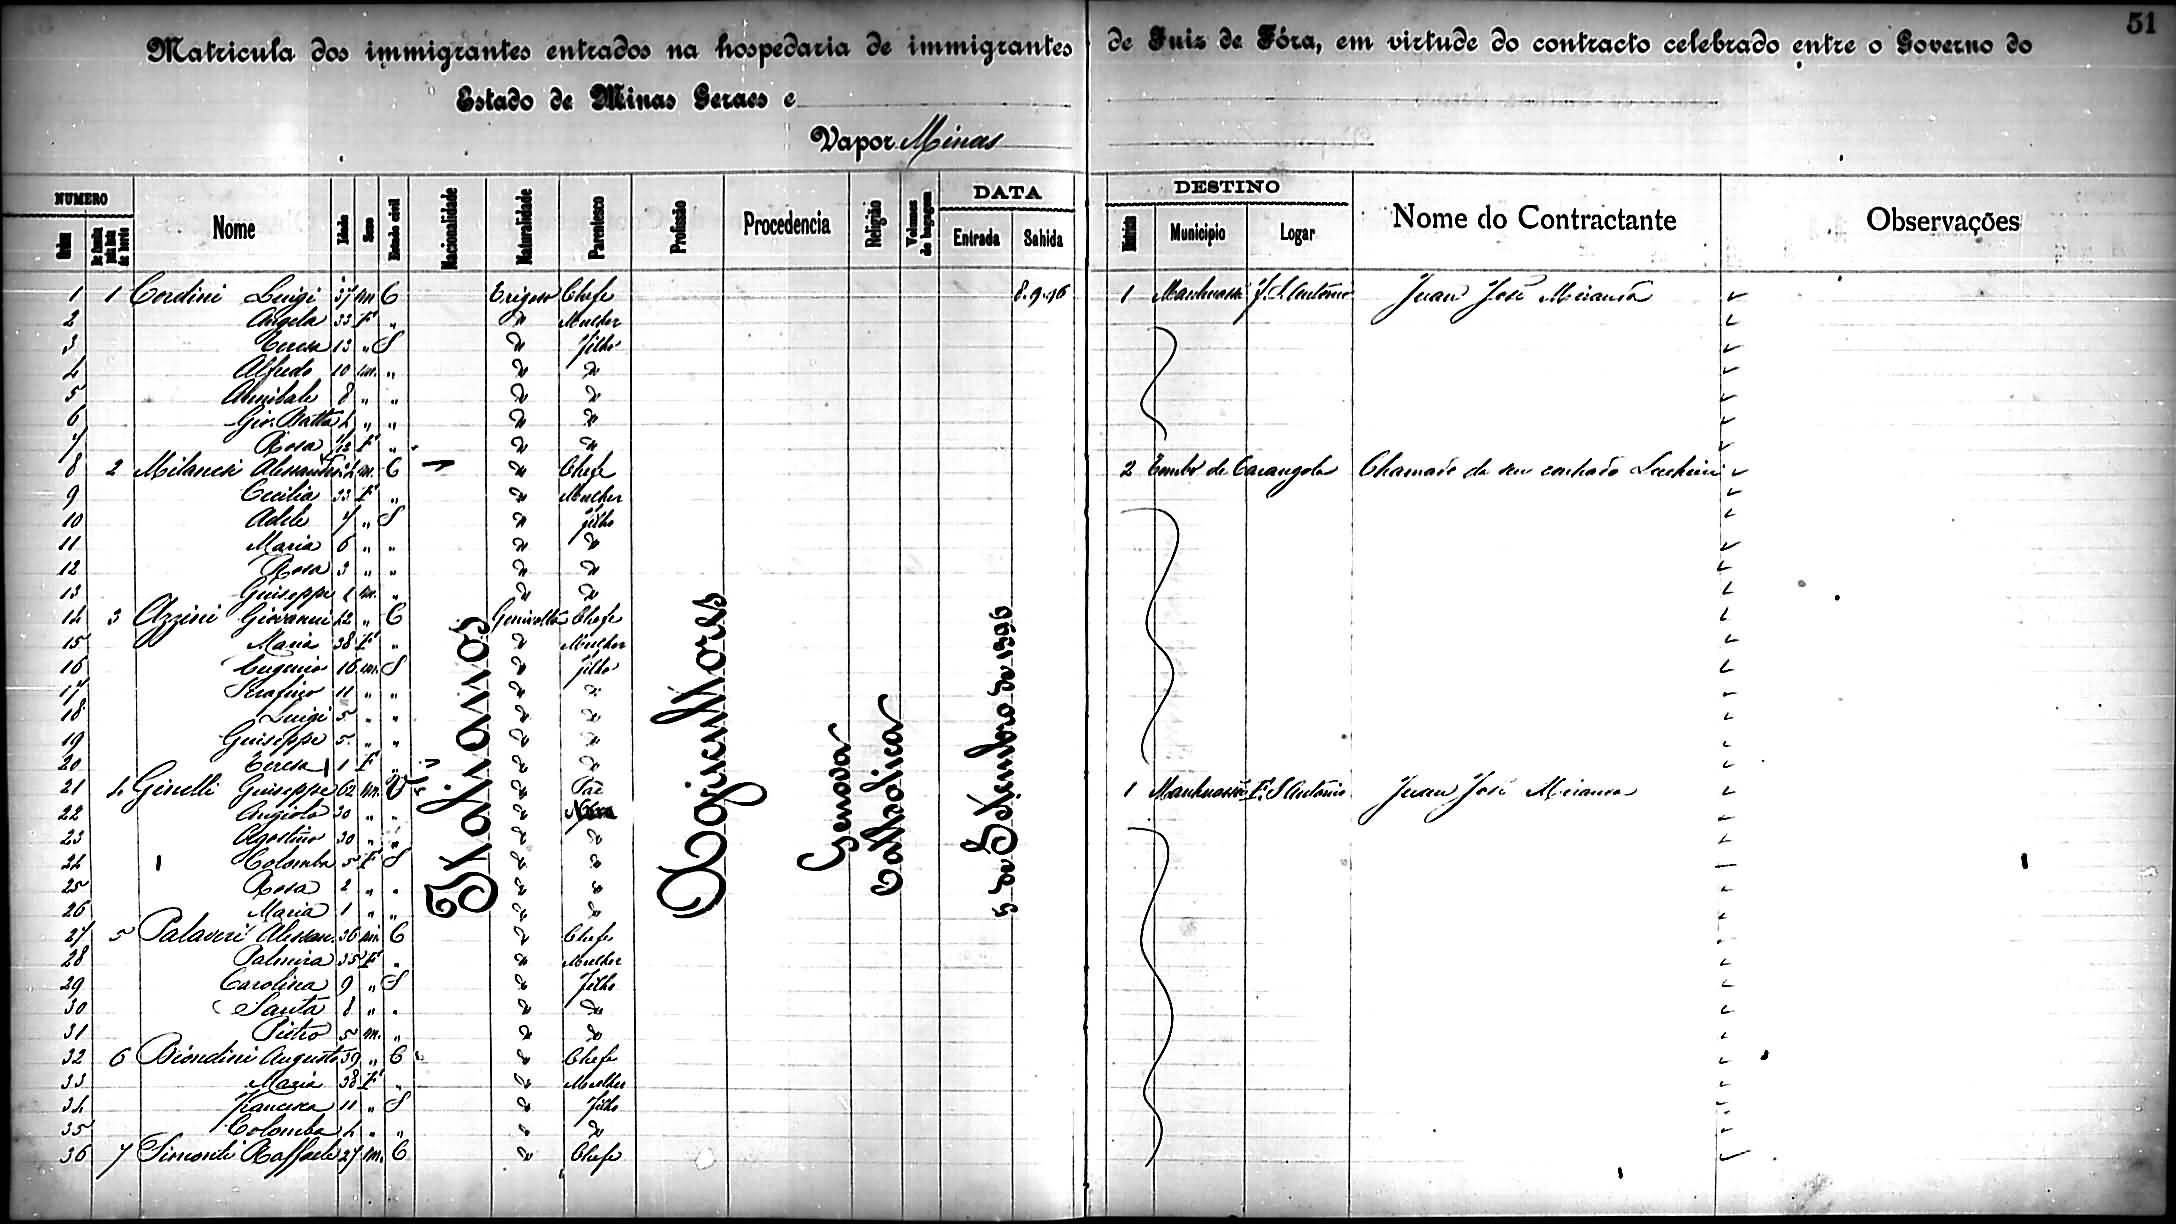 51
Matricula dos immigrantes entrados na hospedaria de immigrantes de Juiz de Fóra, em virtude do contracto celebrado entre o Governo do
Estado de Minas Geraes e
Vapor Minas
NUMERO Nome Idade Sexo Estado civil Nacionalidade Naturalidade Parentesco Profissão Procedencia Religião Volumes de bagagem DATA DESTINO Nome do Contractante Observações
Ordem Entrada Sahida Municipio Logar
1 1 Cordini Luigi 37 m C Chefe 8.9.96 1 S. Antonio Juan José Miranda
2 Angela 33 F " " Mulher
3 Teresa 13 " S " Filho
4 Alfredo 10 m. " " "
5 Annibale 8 " " " "
6 Gio. Batta 4 " " " "
7 Rosa 1/12 F " " "
8 2 m. C " Chefe 2 Tombos de Carangola Chamado de seu cunhado
9 Cecilia 33 F " " Mulher
10 Adele 7 " S " filho
11 Maria 6 " " " "
12 Rosa 3 " " " "
13 Guiseppe 1 m. " " "
14 3 Azzini Giovanni 42 " C Genivolta Chefe
15 Maria 38 F " " Mulher
16 Eugenio 16 m. S " filho
17 Serafino 11 " " " "
18 Luigi 5 " " " "
19 Guiseppe 5 " " " "
20 Teresa 1 F " " "
21 4 Ginelli Guiseppe 62 m. V " Pae 1 S Antonio Juan José Miranda
22 Angiolo 30 " " "
23 Agostino 30 " " " "
24 Colomba 5 F S " "
25 Rosa 2 " " " "
26 Maria 1 " " " "
27 5 Palaveri Alessan. 36 m. C " Chefe
28 Palmira 35 F " " Mulher
29 Carolina 9 " S " Filho
30 Santa 8 " " " "
31 Pietro 5 m. " " "
32 6 Biondini Augusto 39 " C " Chefe
33 Maria 38 F " " Mulher
34 Francesca 11 " S " Filho
35 Colomba 4 " " " "
36 7 Simonti Raffaele 27 m. C " Chefe
Italianos
Agricultores
Genova
Catholica
5 de Setembro de 1896